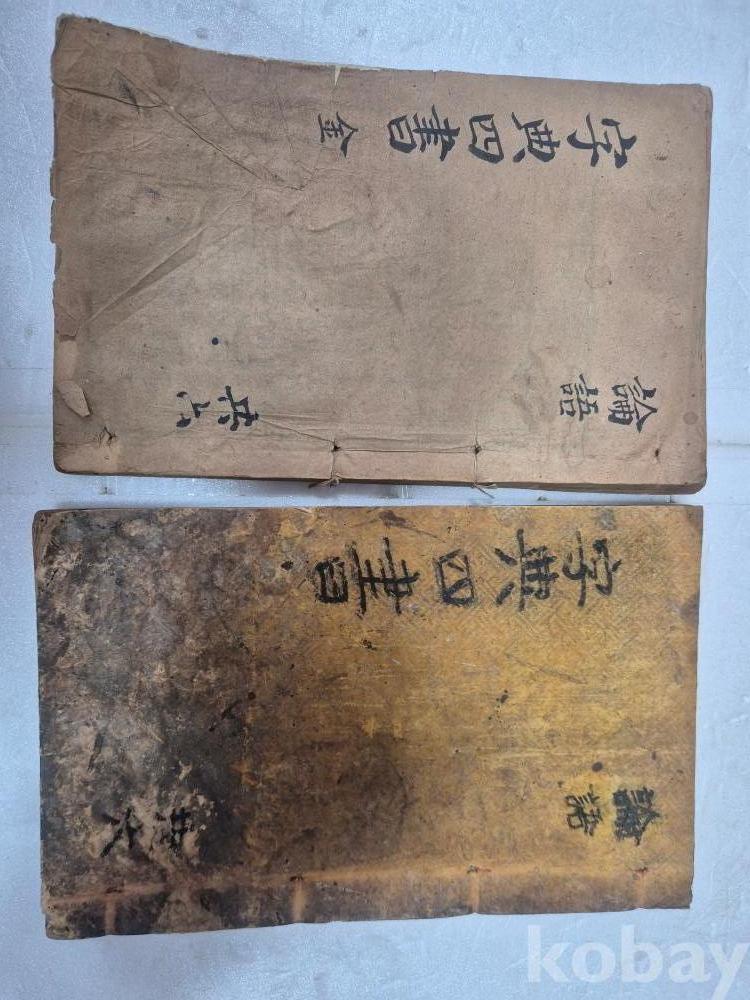 字典四書 金
論語
共六
字典四書
論語
共六
kobay